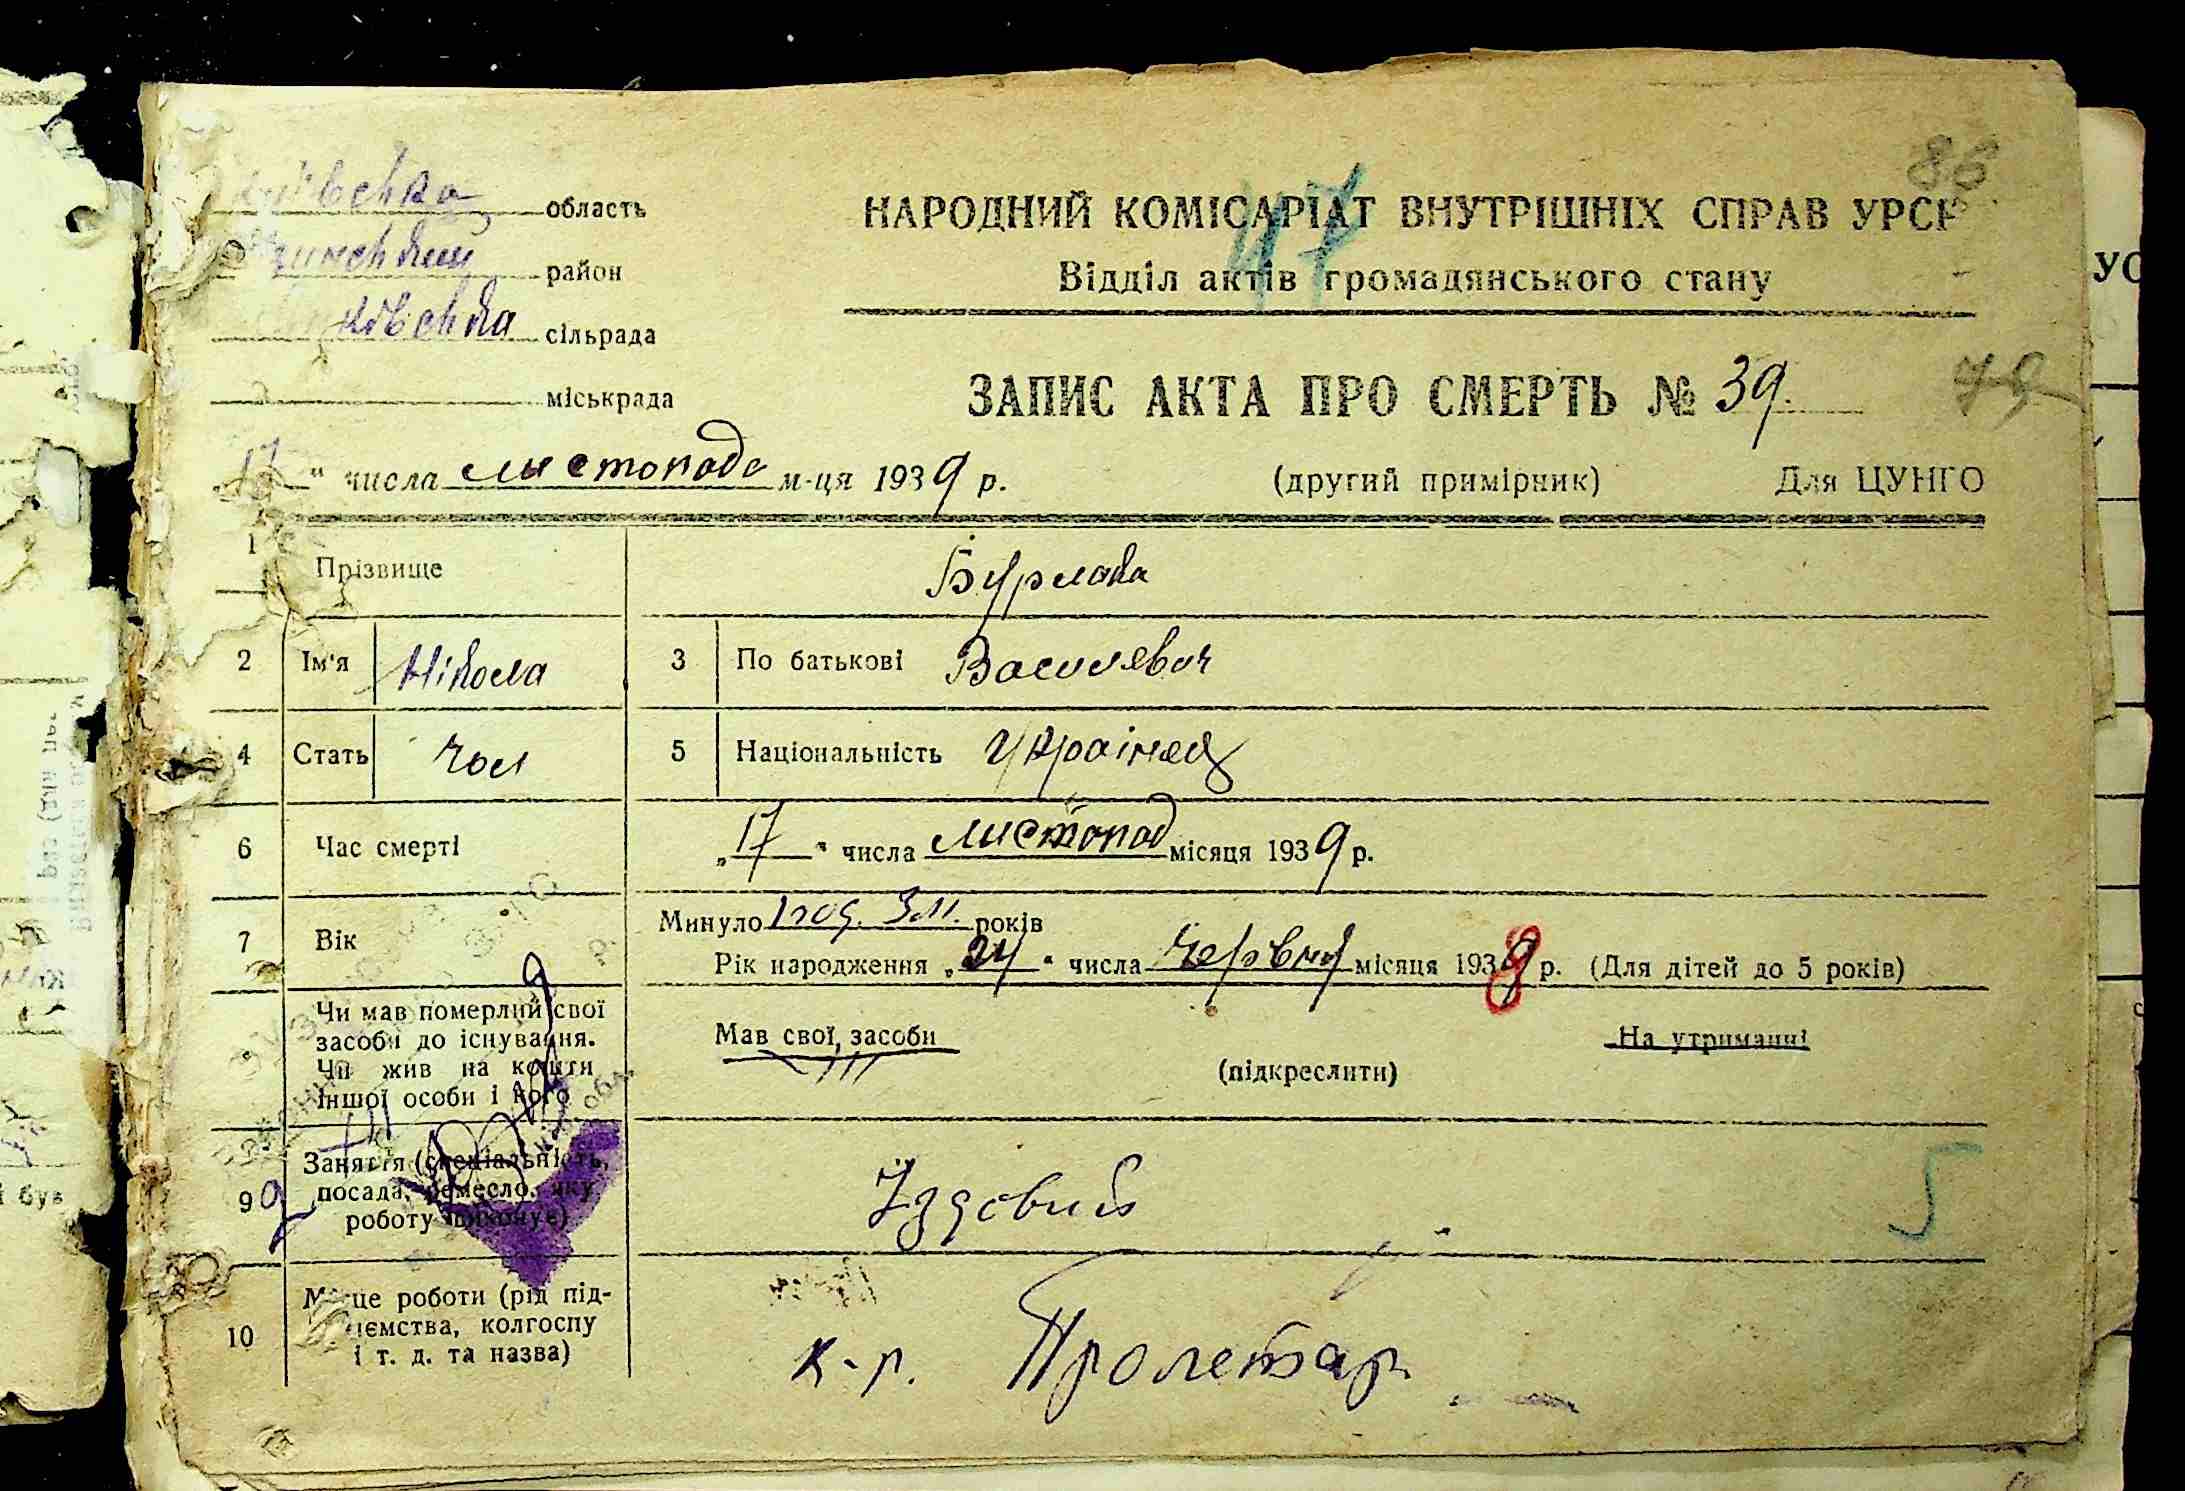 88
Київська область
район
сільрада
міськрада
НАРОДНИЙ КОМІСАРІАТ ВНУТРІШНІХ СПРАВ УРСР
47
Відділ актів громадянського стану
ЗАПИС АКТА ПРО СМЕРТЬ № 39.
79
„17“ числа листопада м-ця 1939 р.
(другий примірник) Для ЦУНГО
1 Прізвище Бурлака
2 Ім'я Нікола 3 По батькові Василявич
4 Стать чол 5 Національність Українец
6 Час смерті „17“ числа листопад місяця 1939 р.
7 Вік Минуло 1 год. 3 м. років
Рік народження „24“ числа червня місяця 1938 р. (Для дітей до 5 років)
Чи мав померлий свої
засоби до існування.
Чи жив на кошти
іншої особи і кого
Мав свої засоби На утриманні
(підкреслити)
9 Заняття (спеціальність,
посада, ремесло, яку
роботу виконує)
Їздовий
5
10 Місце роботи (рід під-
приємства, колгоспу
і т. д. та назва)
к-р. Пролетар
УС
і був